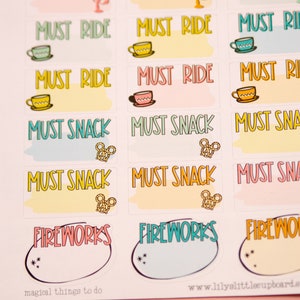 MUST RIDE MUST RIDE MUST RIDE
MUST RIDE MUST RIDE MUST RIDE
MUST SNACK MUST SNACK MUST SNACK
MUST SNACK MUST SNACK MUST SNACK
FIREWORKS FIREWORKS FIREWORKS
magical things to do www.lilyslittlecupboard.c